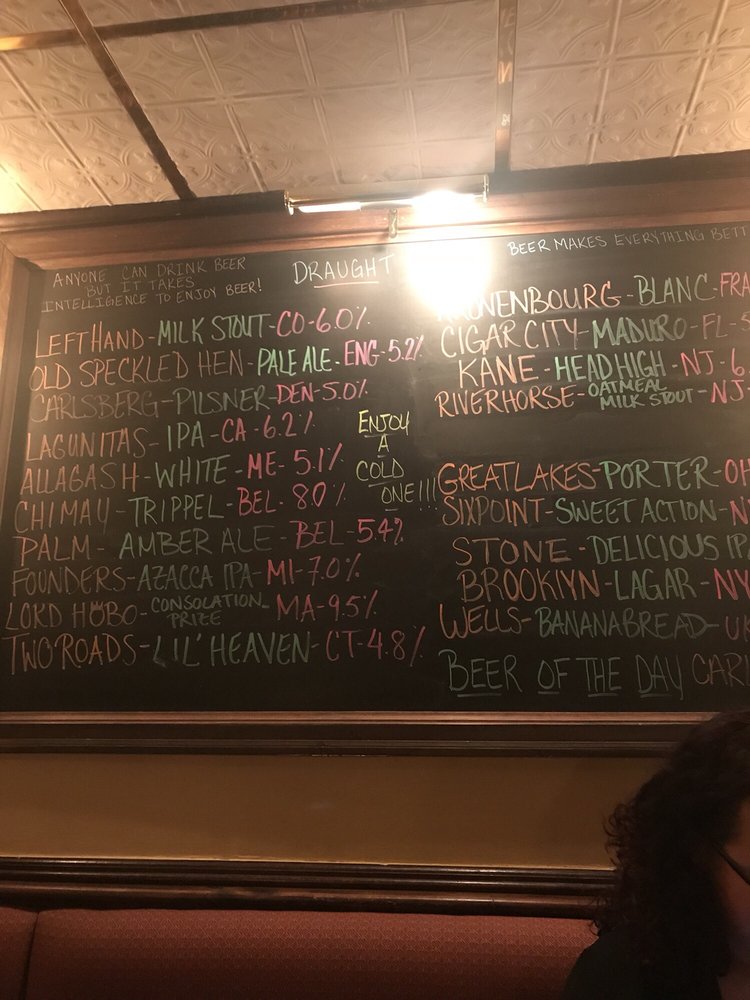 ANYONE CAN DRINK BEER
BUT IT TAKES
INTELLIGENCE TO ENJOY BEER!
DRAUGHT
LEFT HAND-MILK STOUT-CO-6.0%
OLD SPECKLED HEN-PALE ALE-ENG-5.2%
CARLSBERG-PILSNER-DEN-5.0%
LAGUNITAS-IPA-CA-6.2%
ALLAGASH-WHITE-ME-5.1%
CHIMAY-TRIPPEL-BEL-8.0%
PALM-AMBER ALE-BEL-5.4%
FOUNDERS-AZACCA IPA-MI-7.0%
LORD HOBO-CONSOLATION PRIZE-MA-9.5%
TWO ROADS-LIL' HEAVEN-CT-4.8%
ENJOY
A
COLD
ONE!!!
BEER MAKES EVERYTHING BETT
BLANC-FRA
CIGAR CITY-MADURO-FL-
KANE-HEAD HIGH-NJ-6.
RIVERHORSE-OATMEAL MILK STOUT-NJ
GREAT LAKES-PORTER-OH
SIXPOINT-SWEET ACTION-N
STONE-DELICIOUS IP
BROOKLYN-LAGAR-NY
WELLS-BANANA BREAD-UK
BEER OF THE DAY CARL